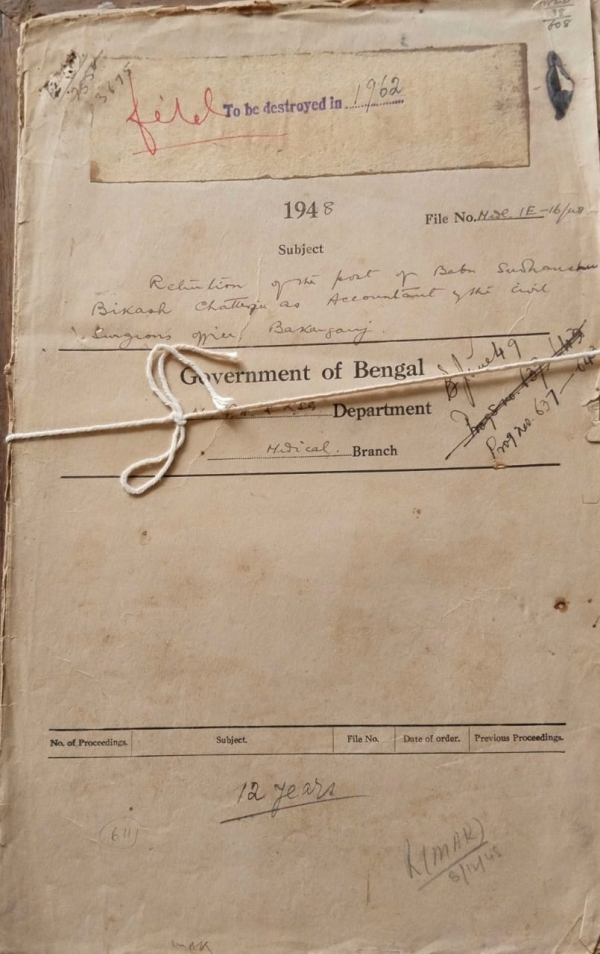 3675
608
To be destroyed in 1962
1948
File No. Med. 1E-16/48
Subject
Retention of the post of Babu Sudhansu
Bikash Chatterjee as Accountant of the Civil
Surgeons office, Bakarganj.
Government of Bengal
Department
Medical. Branch
B/June 49
Prog no. 637-642
No. of Proceedings. Subject. File No. Date of order. Previous Proceedings.
12 years
611
R(MAK)
8/12/48
mak